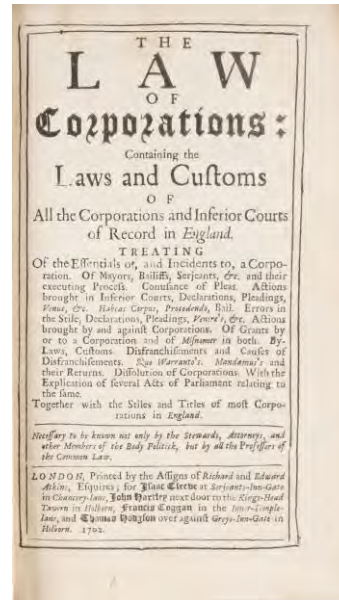 THE
LAW
OF
Corporations:
Containing the
Laws and Cuſtoms
OF
All the Corporations and Inferior Courts
of Record in England.
TREATING
Of the Eſſentials of, and Incidents to, a Corpo-
ration. Of Mayors, Bailiffs, Serjeants, &c. and their
executing Proceſs. Conuſance of Pleas. Actions
brought in Inferior Courts, Declarations, Pleadings,
Venue, &c. Habeas Corpus, Procedendo, Bail. Errors in
the Stile, Declarations, Pleadings, Venire's, &c. Actions
brought by and againſt Corporations. Of Grants by
or to a Corporation and of Miſnomer in both. By-
Laws, Cuſtoms. Disfranchiſements and Cauſes of
Disfranchiſements. Quo Warranto's. Mandamus's and
their Returns. Diſſolution of Corporations. With the
Explication of ſeveral Acts of Parliament relating to
the ſame.
Together with the Stiles and Titles of moſt Corpo-
rations in England.
Neceſſary to be known not only by the Stewards, Attorneys, and
other Members of the Body Politick, but by all the Profeſſors of
the Common Law.
LONDON, Printed by the Aſſigns of Richard and Edward
Atkins, Eſquires; for Iſaac Cleeve at Serjeants-Inn-Gate
in Chancery-lane, John Hartley next door to the Kings-Head
Tavern in Holborn, Francis Coggan in the Inner-Temple-
lane, and Thomas Hodgſon over againſt Greys-Inn-Gate in
Holborn. 1702.